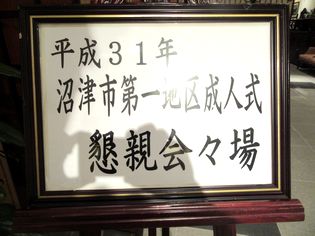 平成31年
沼津市第一地区成人式
懇親会々場